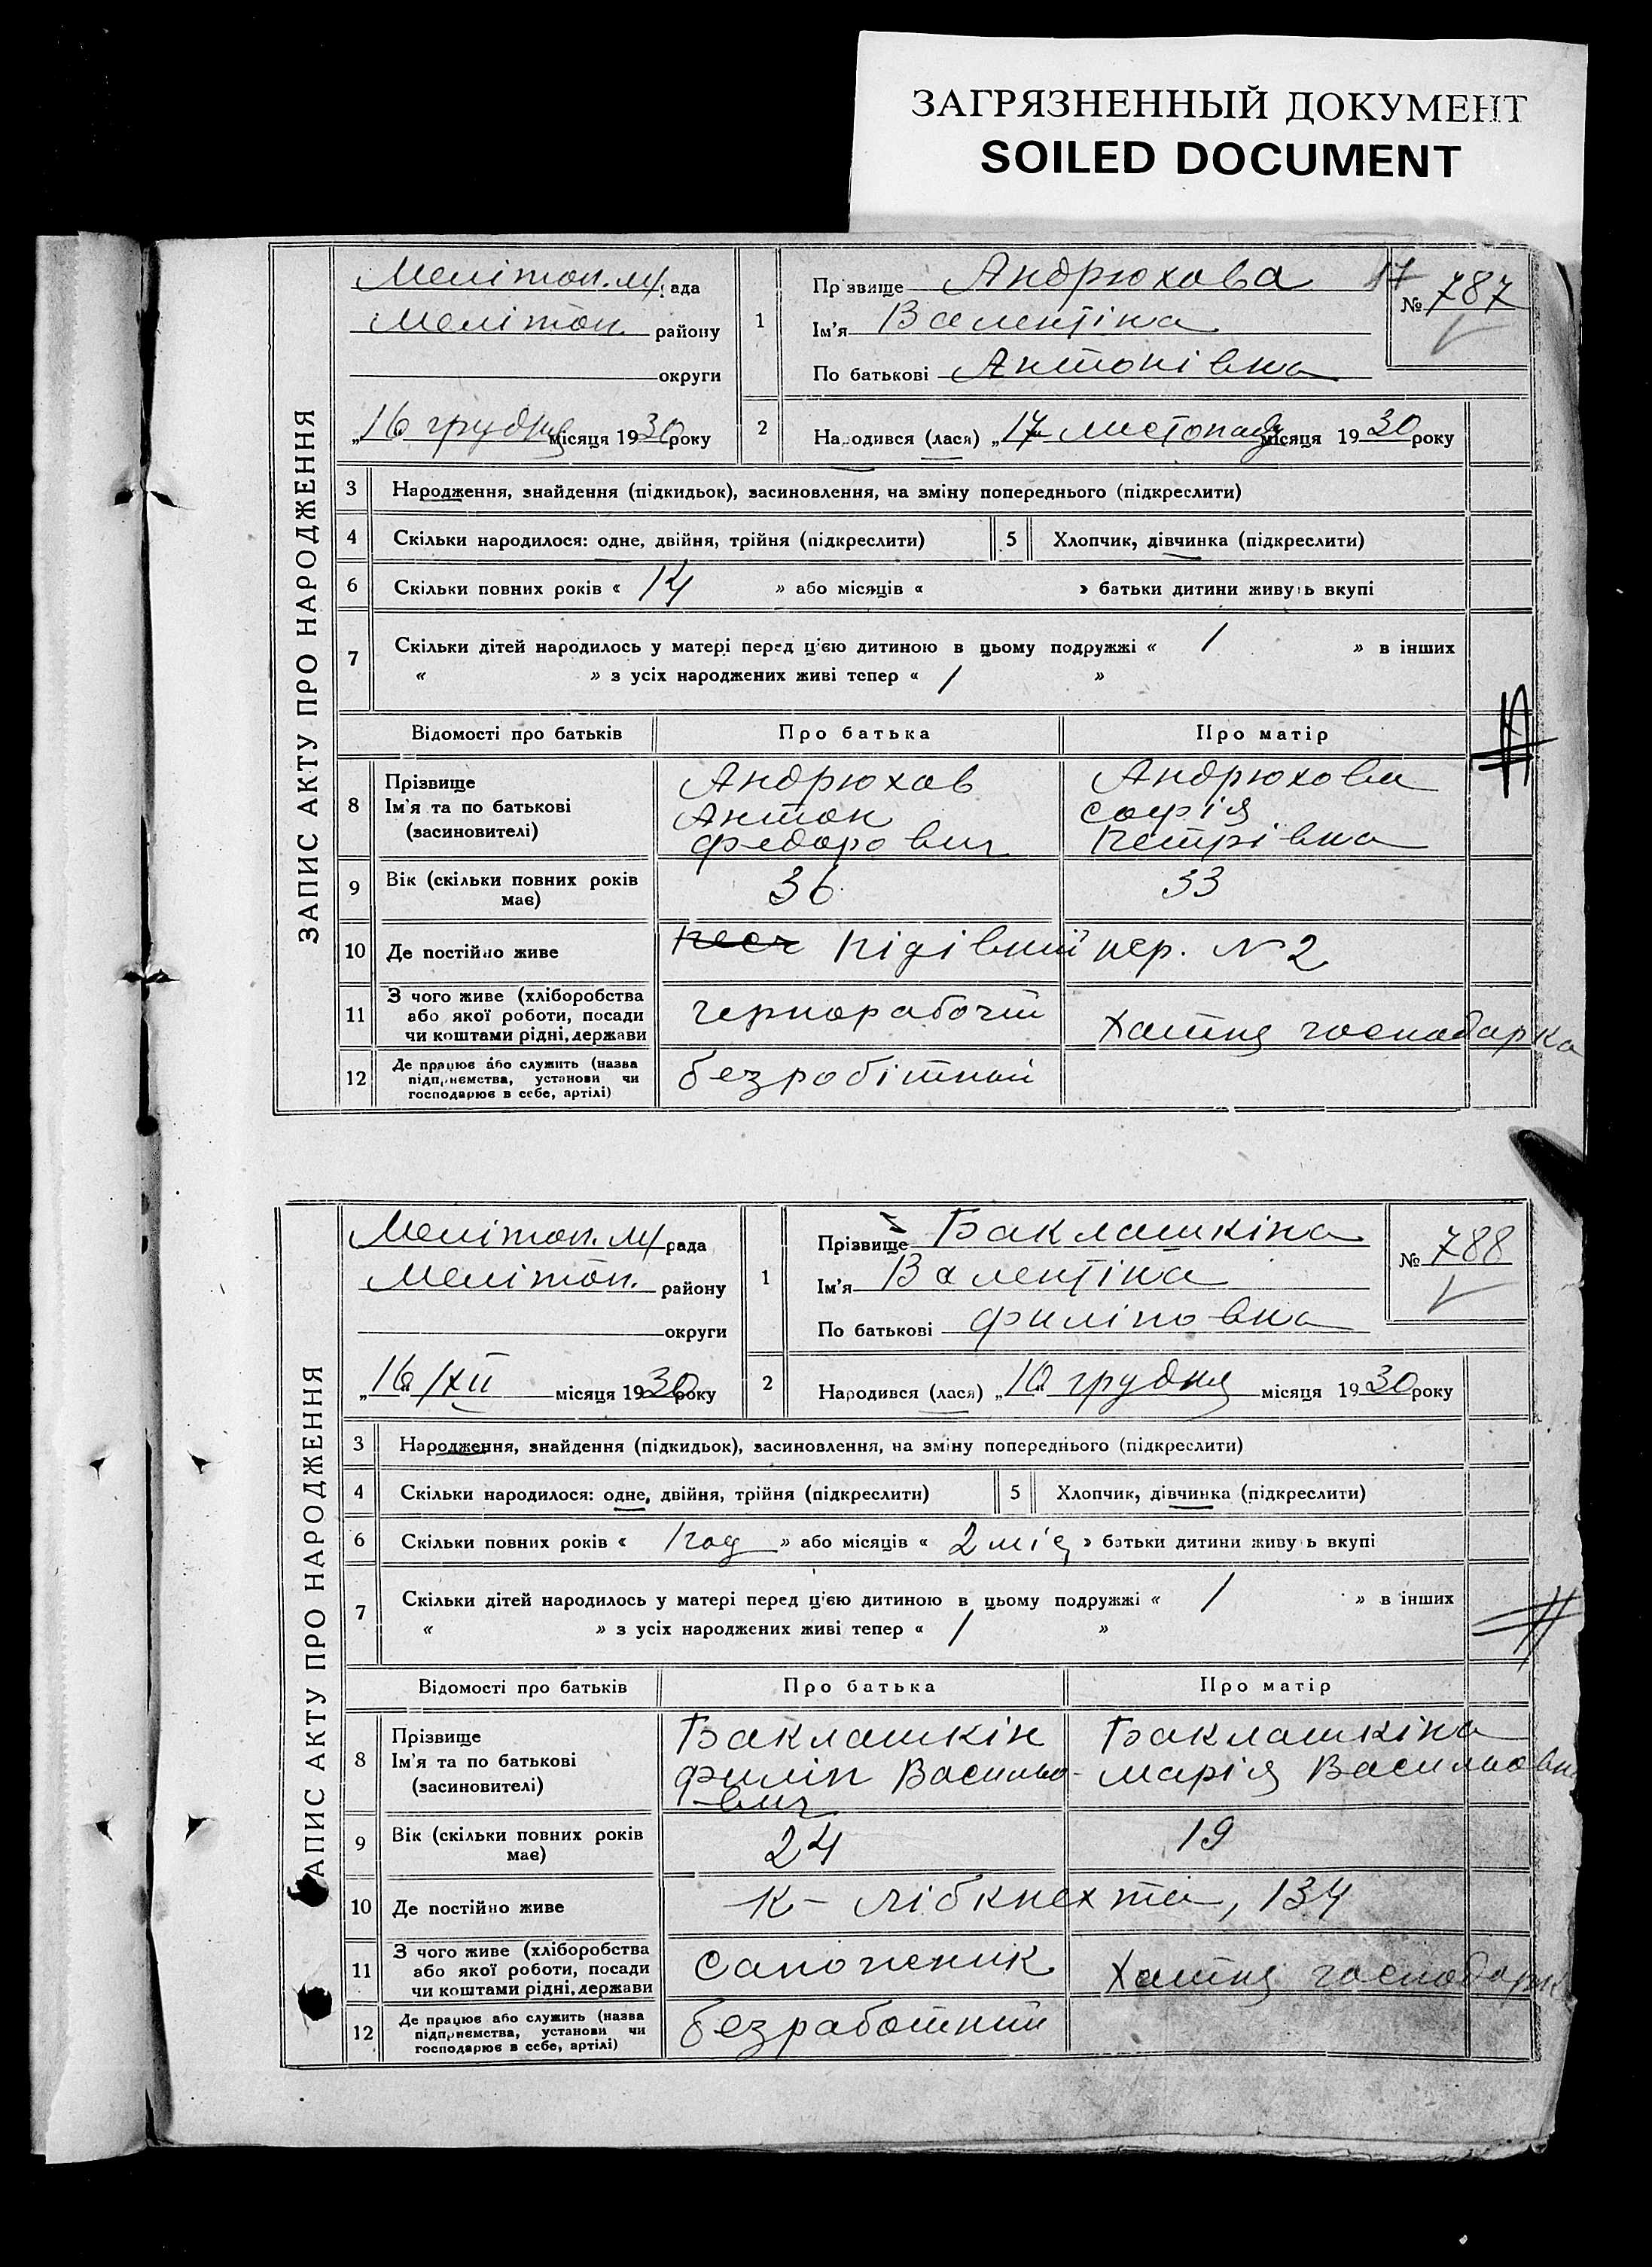 ЗАГРЯЗНЕННЫЙ ДОКУМЕНТ
SOILED DOCUMENT
ЗАПИС АКТУ ПРО НАРОДЖЕННЯ
Мелітоп. м/рада
Мелітоп. району
округи
„16 грудня місяця 1930 року
1
Прізвище Андрюхова
Ім'я Валентіна
По батькові Антонівна
17
№ 787
2
Народився (лася) „17 листопада місяця 1930 року
3 Народження, знайдення (підкидьок), засиновлення, на зміну попереднього (підкреслити)
4 Скільки народилося: одне, двійня, трійня (підкреслити) 5 Хлопчик, дівчинка (підкреслити)
6 Скільки повних років « 14 » або місяців « » батьки дитини живуть вкупі
7 Скільки дітей народилось у матері перед цією дитиною в цьому подружжі « 1 » в інших
« » з усіх народжених живі тепер « 1 »
Відомості про батьків Про батька Про матір
8 Прізвище Ім'я та по батькові (засиновителі)
Андрюхов Антон Федорович
Андрюхова Софія Петрівна
9 Вік (скільки повних років має) 36 33
10 Де постійно живе пер. N 2
11 З чого живе (хліборобства або якої роботи, посади чи коштами рідні, держави
чернорабочій Хатня господарка
12 Де працює або служить (назва підприємства, установи чи господарює в себе, артілі)
безробітний
ЗАПИС АКТУ ПРО НАРОДЖЕННЯ
Мелітоп. м/рада
Мелітоп. району
округи
„16/XII місяця 1930 року
1
Прізвище Баклашкіна
Ім'я Валентіна
По батькові Филіповна
№ 788
2
Народився (лася) „10 грудня місяця 1930 року
3 Народження, знайдення (підкидьок), засиновлення, на зміну попереднього (підкреслити)
4 Скільки народилося: одне, двійня, трійня (підкреслити) 5 Хлопчик, дівчинка (підкреслити)
6 Скільки повних років « 1 год » або місяців « 2 міс » батьки дитини живуть вкупі
7 Скільки дітей народилось у матері перед цією дитиною в цьому подружжі « 1 » в інших
« » з усіх народжених живі тепер « 1 »
Відомості про батьків Про батька Про матір
8 Прізвище Ім'я та по батькові (засиновителі)
Баклашкін Филіп Васильо-вич
Баклашкіна Марія Васильовна
9 Вік (скільки повних років має) 24 19
10 Де постійно живе К-Лібкнехта, 134
11 З чого живе (хліборобства або якої роботи, посади чи коштами рідні, держави
Сапожник Хатня господарк
12 Де працює або служить (назва підприємства, установи чи господарює в себе, артілі)
безработний